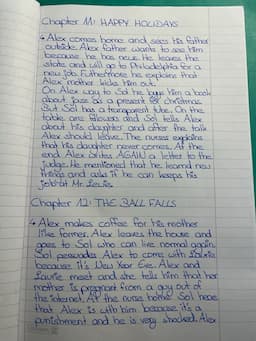 Chapter 11: HAPPY HOLIDAYS
↳ Alex comes home and sees his father
outside. Alex father wants to see him
because he has news. He leaves the
state and will go to Philadelphia for a
new job. Futhermore he explains that
Alex' mother kicks him out.
On Alex way to Sol he buys him a book
about jazz as a present for christmas.
But Sol has a transparent tube. On the
table are flowers and Sol tells Alex
about his daughter and after the talk
Alex should leave. The nurse explains
that his daughter never comes. At the
end Alex writes AGAIN a letter to the
judge. He mentioned that he learned new
things and asks if he can keeps his
job at Mr. Lewis.
Chapter 12: THE BALL FALLS
↳ Alex makes coffee for his mother
like former. Alex leaves the house and
goes to Sol who can live normal again.
Sol persuades Alex to come with
because it's New Year Eve. Alex and
Laurie meet and she tells him that her
mother is pregnant from a guy out of
the internet. At the nurse home Sol hears
that Alex is with him because it's a
punishment and he is very shocked. Alex